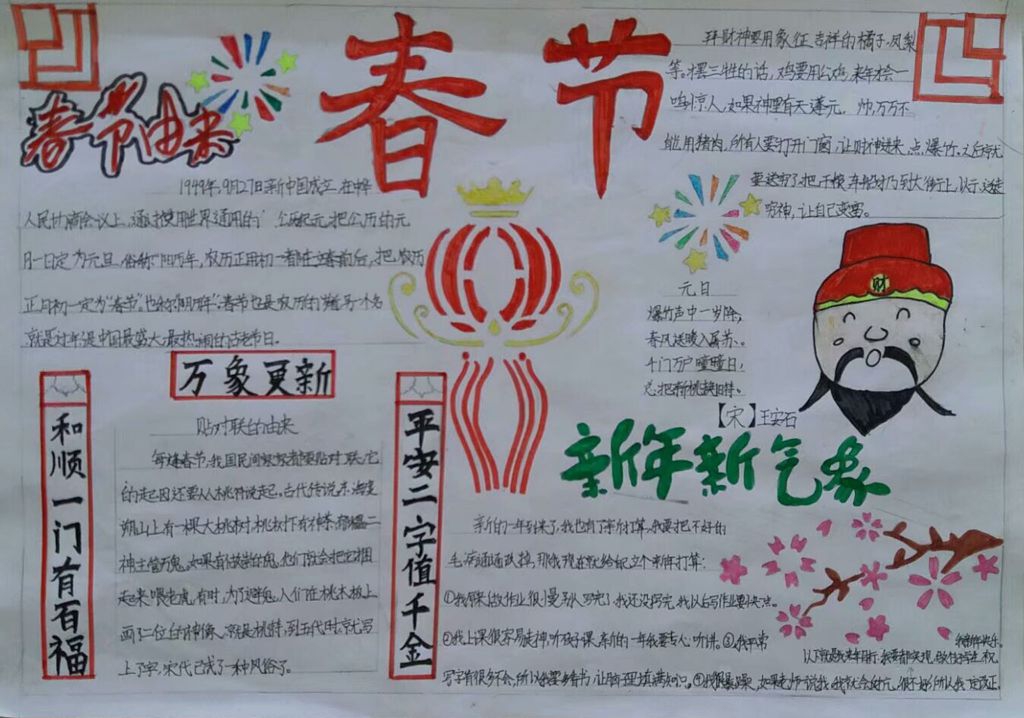 春节
春节由来
1949年,9月27日新中国成立,在中华
人民协商会议上,通过使用世界通用的"公历纪元,把公历的元
月一日定为元旦,俗称"阳历年,农历正月初一都在立春前后,把农历
正月初一定为"春节"也称"阴历年",春节也是农历的
就是过年,是中国最盛大、最热闹的古老节日。
拜财神要用象征吉祥的橘子、凤梨
等。摆三牲的话,鸡要用公鸡,来年才会一
鸣惊人,如果神里有天蓬元帅,万万不
能用猪肉,所有人要打开门窗,让财神进来,点爆竹,之后
要送穷了,把
穷神,让自己变富。
元日
爆竹声中一岁除,
春风送暖入屠苏。
千门万户曈曈日,
总把新桃换旧符。
【宋】王安石
财
万象更新
和顺一门有百福
平安二字值千金
贴对联的由来
每逢春节,我国民间家家都要贴对联,它
的起因还要从桃符说起。古代传说东海度
朔山上有一棵大桃树,桃树下有神荼、郁櫑二
神主管万鬼,如果有
起来喂老虎,有时,为了避鬼,人们在桃木板上
画了二位的神像,就是桃符,到五代时就写
上了字,宋代已成了一种风俗了。
新年新气象
新的一年到来了,我也有了新打算,我要把不好的
毛病通通改掉,那我现在就给自己立个来年打算:
①我每天做作业很慢,别人写完了,我还没写完,我以后写作业要快一点。
②我上课很容易走神,听不好课,新的一年我要专心听讲。③我平常
写字有很多不会,所以我要多看书,让脑子里填满知识。④我很暴躁,如果老师说我,我就会